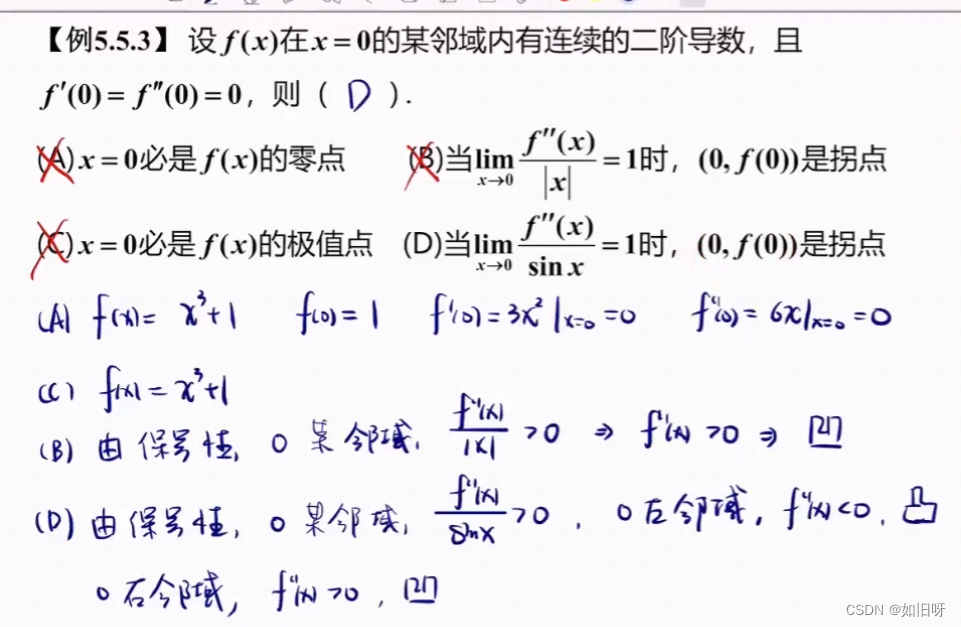 【例5.5.3】设f(x)在x=0的某邻域内有连续的二阶导数，且
f′(0)=f″(0)=0，则（ D ）.
(A)x=0必是f(x)的零点 (B)当lim_{x→0} f″(x)/|x|=1时，(0,f(0))是拐点
(C)x=0必是f(x)的极值点 (D)当lim_{x→0} f″(x)/sin x=1时，(0,f(0))是拐点
(A) f(x)= x³+1 f(0)=1 f′(0)=3x²|x=0 =0 f″(0)= 6x|x=0 =0
(C) f(x)=x³+1
(B) 由保号性, 0某邻域, f″(x)/|x| >0 ⇒ f″(x)>0 ⇒ 凹
(D) 由保号性, 0某邻域, f″(x)/sinx >0, 0左邻域, f″(x)<0, 凸
0右邻域, f″(x)>0, 凹
CSDN @如旧呀